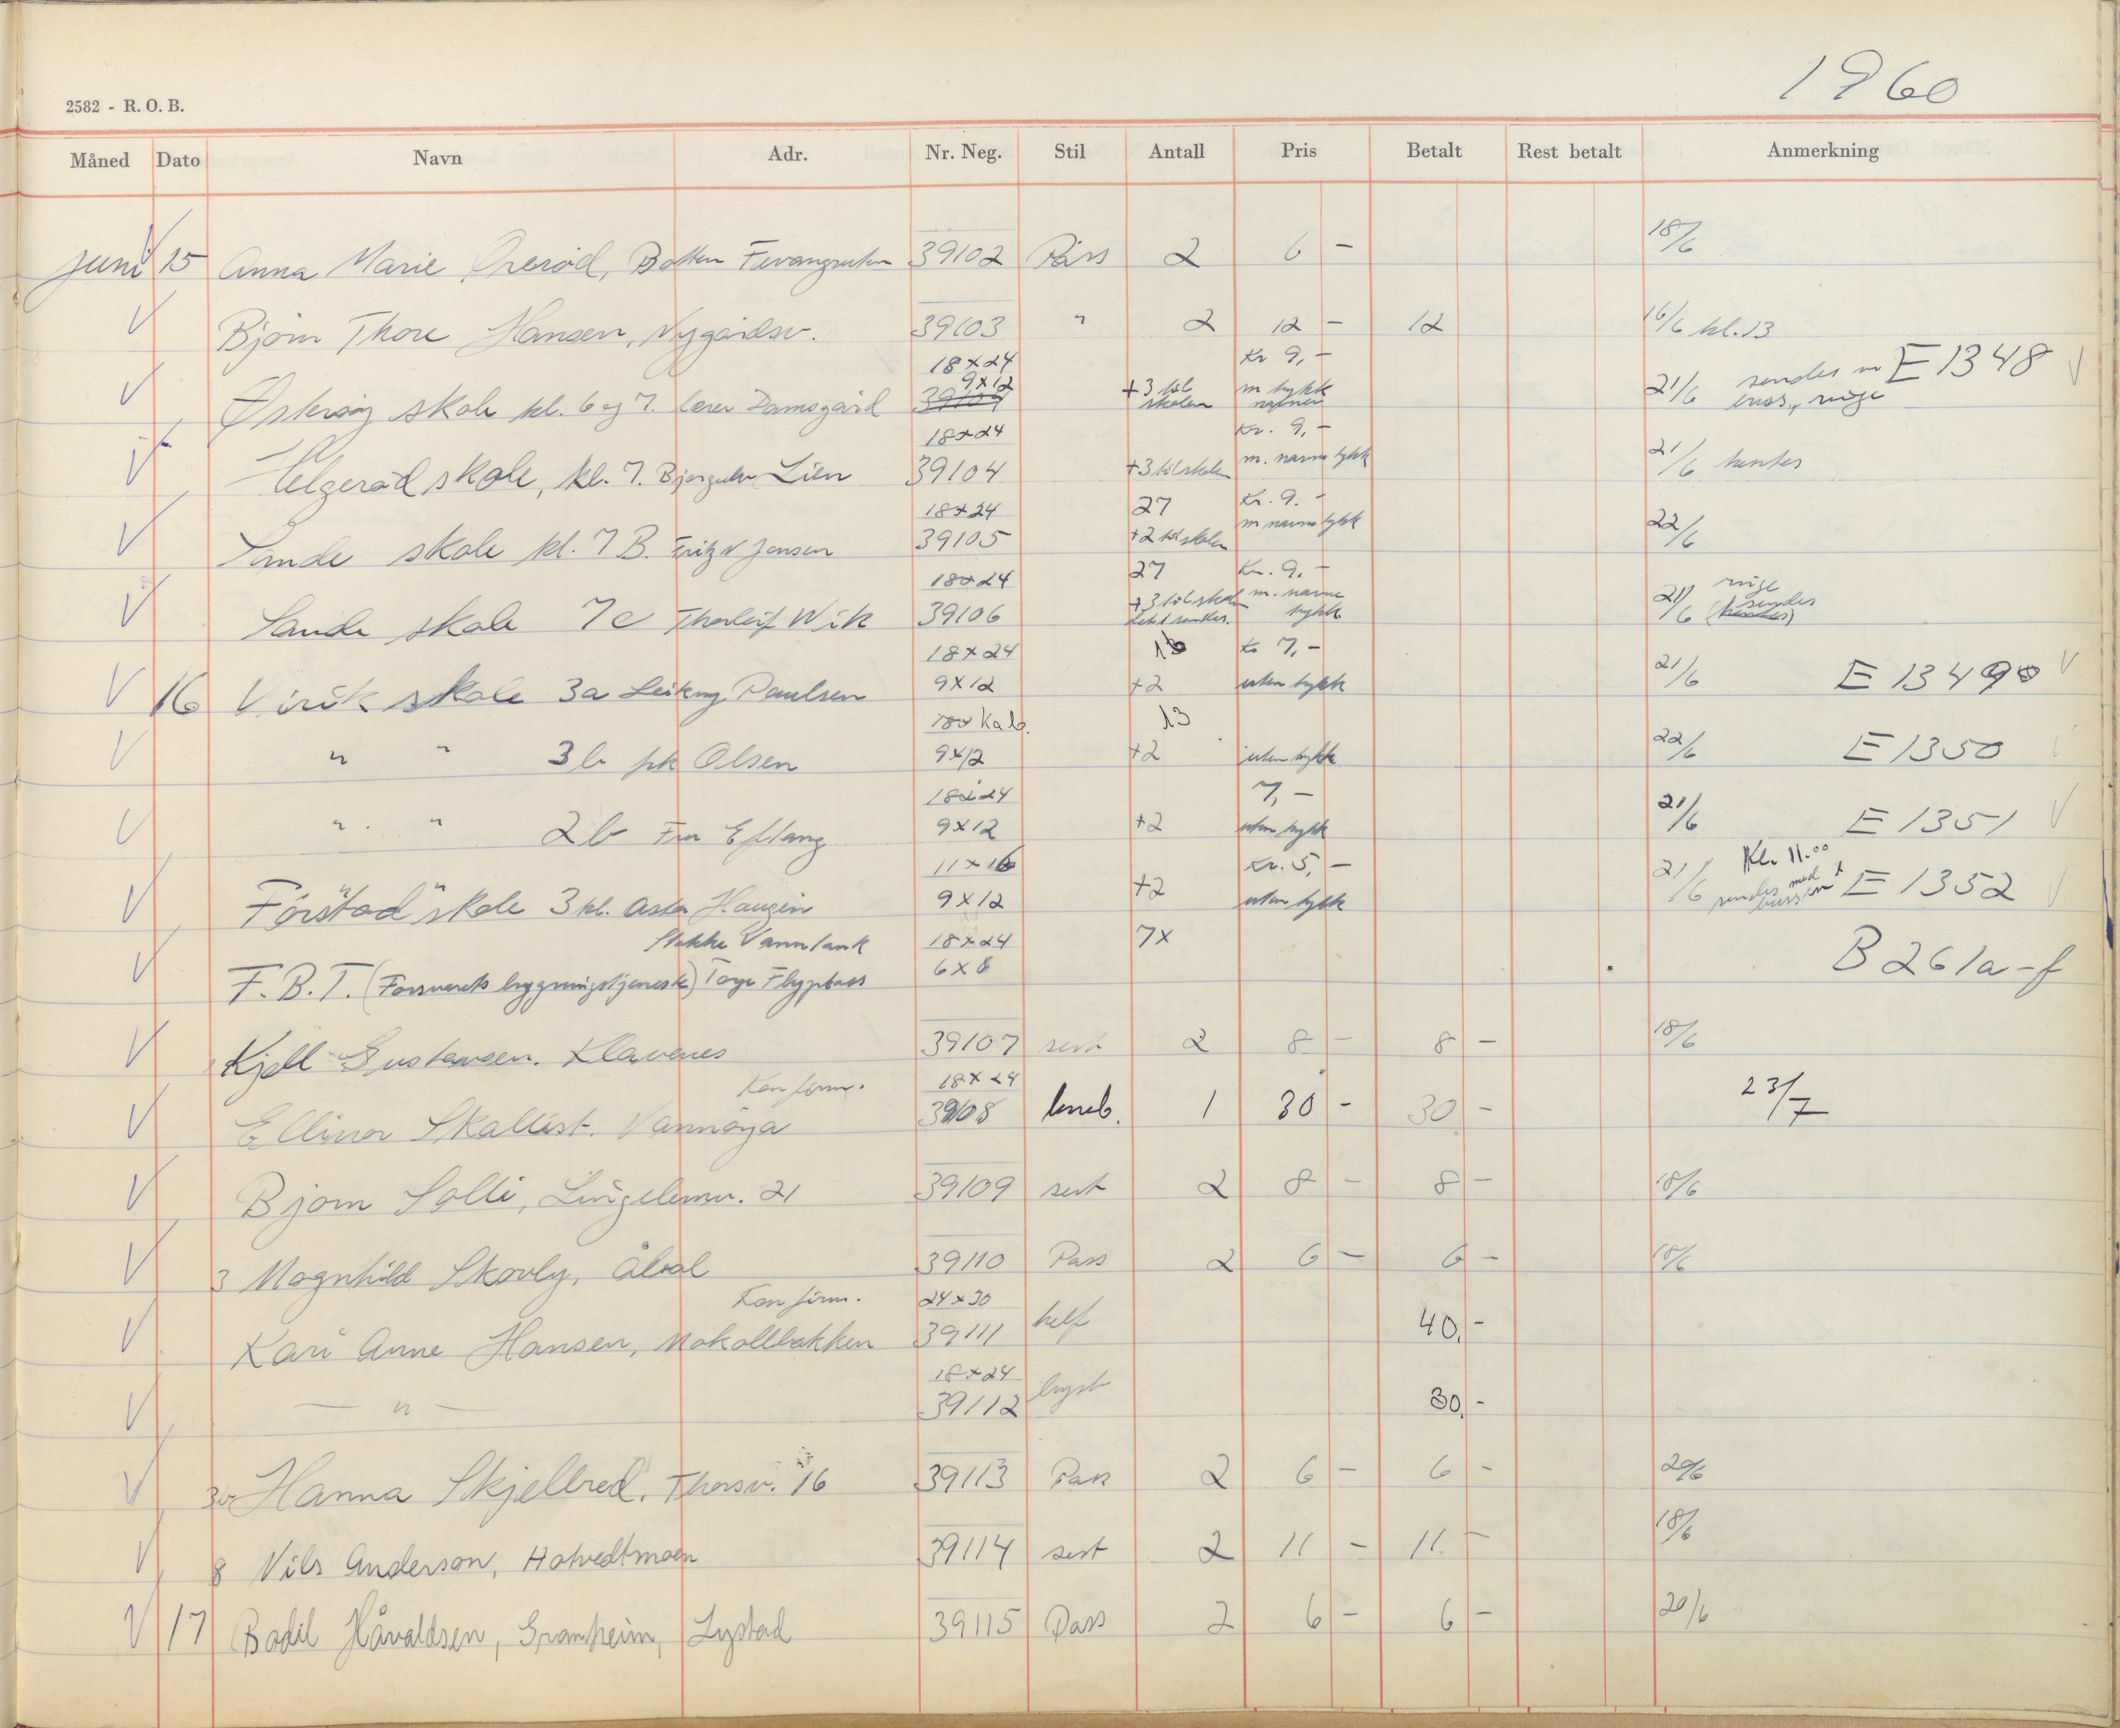 1960
2582 - R. O. B.
Måned Dato Navn Adr. Nr. Neg. Stil Antall Pris Betalt Rest betalt Anmerkning
Juni 15 Anna Marie Ørerød, Botten 39102 Pass 2 6 - 18/6
Bjørn Thore Hansen, Nygårdsv. 39103 " 2 12 - 12 16/6 kl. 13
18x24 Kr 9,-
skole kl. 6 og 7. lærer Damsgård 9x12 39104 +3 til skolen m trykk navner 21/6 sendes m E 1348
18x24 Kr. 9,-
Helgerød skole, kl. 7. Lien 39104 +3 til skolen m. navne trykk 21/6 hentes
18x24 27 Kr. 9.-
Sande skole kl. 7 B. Fritz N Jensen 39105 +2 til skolen m navne trykk 22/6
18x24 27 Kr. 9,-
Sande skole 7c Thorleif Wik 39106 +3 til skolen m. navne trykk 21/6 sendes (hentes)
18x24 16 Kr 7,-
16 Virik skole 3a Leikny Paulsen 9x12 +2 uten trykk 21/6 E 13490
Kab. 13
" " 3b frk Olsen 9x12 +2 uten trykk 22/6 E 1350
18x24 7,-
" " 2b Fru Eftang 9x12 +2 uten trykk 21/6 E 1351
11x16 Kr. 5,- Kl. 11.00
"Førstad" skole 3 kl. Asta Haugen 9x12 +2 uten trykk 21/6 sendes med bussen E 1352
Stokke Vanntank 18x24 7x
F.B.T. (Forsvarets bygningstjeneste) Torp Flyplass 6x8 B 261a-f
Kjell Gustavsen. Klavenes 39107 sert 2 8 - 8 - 18/6
Konfirm. 18x24
Ellinor Skallist. Vannøya 39108 1 30 - 30 - 23/7
Bjørn Solli, Lingelemv. 21 39109 sert 2 8 - 8 - 18/6
3 Magnhild Skovly, 39110 Pass 2 6 - 6 - 18/6
Konfirm. 24x30
Kari Anne Hansen, Mokollbakken 39111 helf 40,-
18x24
— " — 39112 bryst 30,-
Hanna Skjelbred. Thorsv. 16 39113 Pass 2 6 - 6 - 20/6
8 Nils Anderson, Hotvedtmoen 39114 sert 2 11 - 11 - 18/6
17 Bodil Håvaldsen, Granheim, Lystad 39115 Pass 2 6 - 6 - 20/6